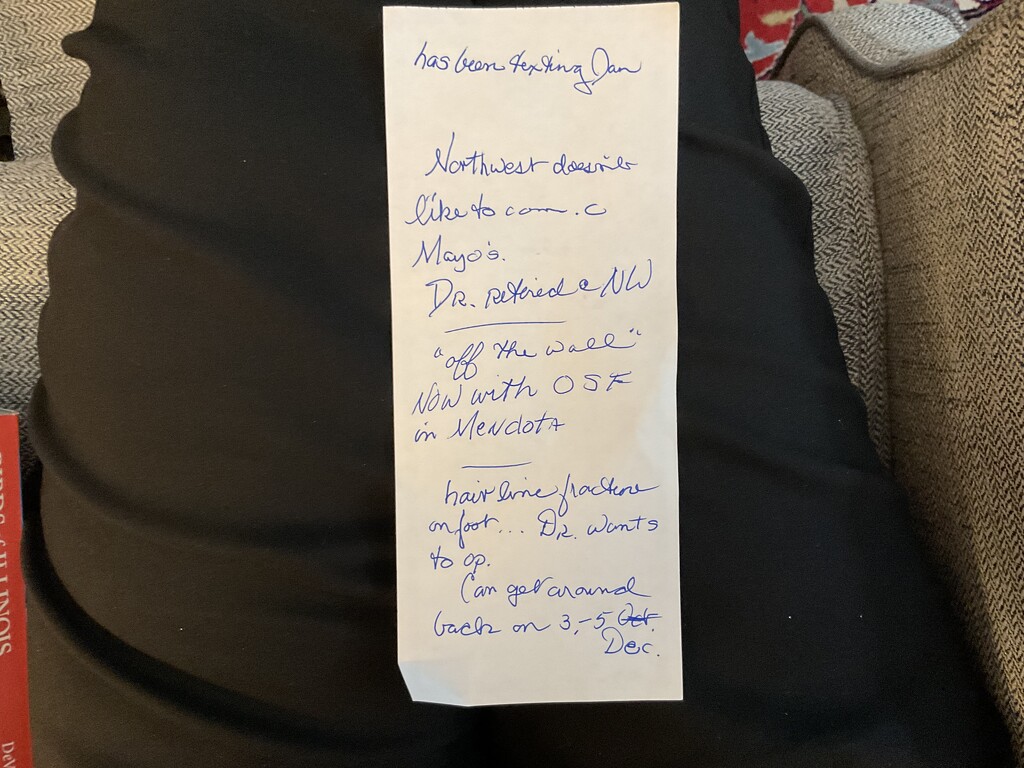 has been texting Jan
Northwest doesn't
like to com. c
Mayo's.
DR. retired @ NW
"off the wall"
NOW with OSF
in Mendota
hairline fracture
on foot... DR. wants
to op.
Can get around
back on 3,-5 Oct
Dec.
BIRDS of ILLINOIS